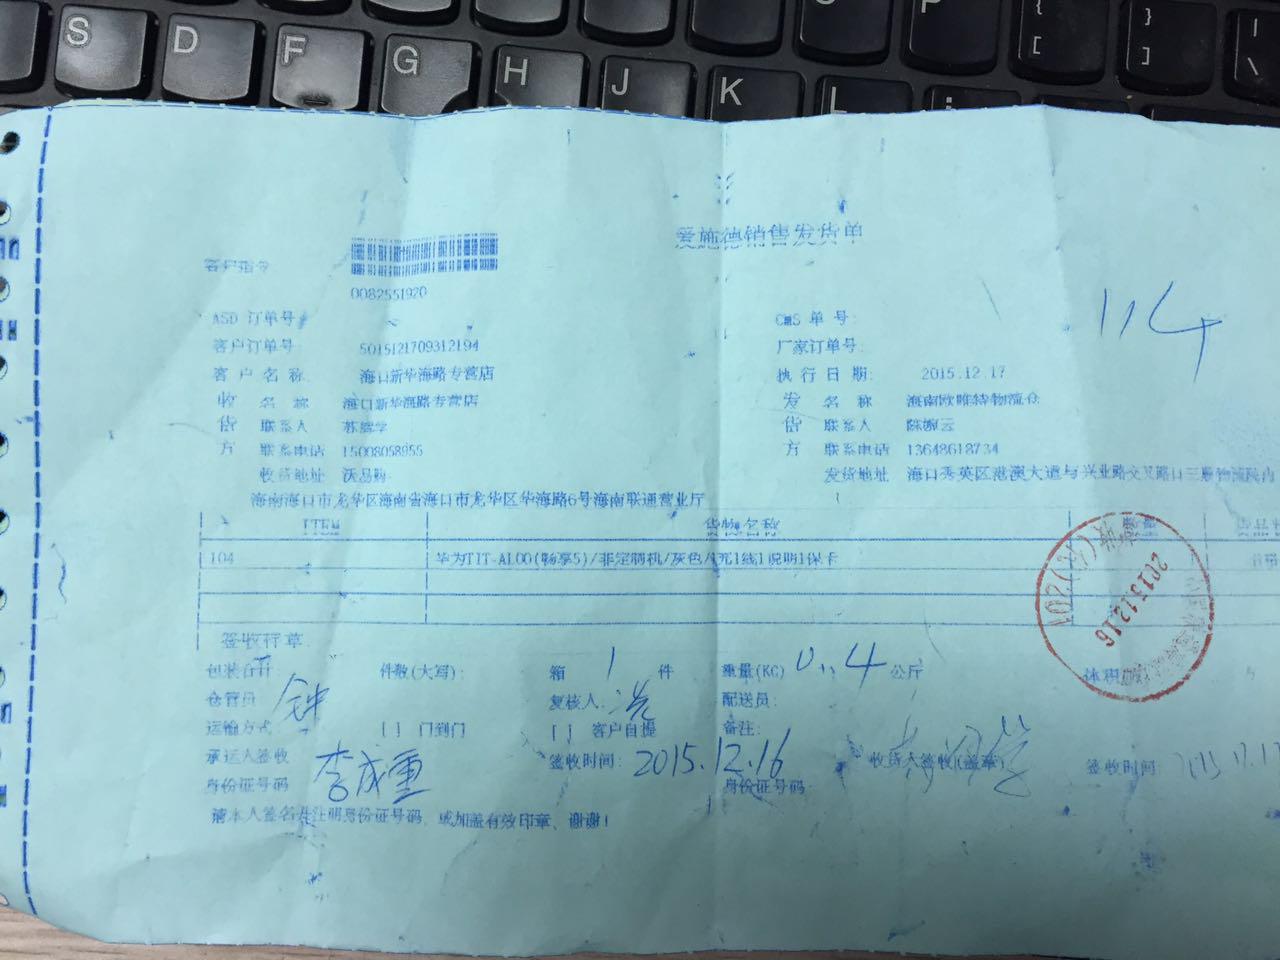 S D F G H J K L
爱施德销售发货单
客户指令
0082551920
114
ASD 订单号
CMS 单 号:
客户订单号 5015121709312194
厂家订单号:
客 户 名 称 海口新华海路专营店
执 行 日 期: 2015.12.17
收 名 称 海口新华海路专营店
发 名 称 海南欧唯特物流仓
货 联系人
货 联系人
方 联系电话 15008058955
方 联系电话 13648618734
收货地址 沃品购
发货地址 海口秀英区港澳大道与兴业路交叉路口三 物流院内
海南海口市龙华区海南省海口市龙华区华海路6号海南联通营业厅
ITEM 货物名称 数量
104 华为TIT-AL00(畅享5)/非定制机/灰色/1充1线1说明1保卡
2015.12.16
签收行草
包装合计: 件数(大写): 箱 1 件 重量(KG) 0.4 公斤 体积
仓管员: 钟 复核人: 冼 配送员:
运输方式: [ ] 门到门 [ ] 客户自提 备注:
承运人签收 李成重 签收时间: 2015.12.16 收货人签收(盖章) 签收时间:
身份证号码 身份证号码:
请本人签名并注明身份证号码, 或加盖有效印章, 谢谢!